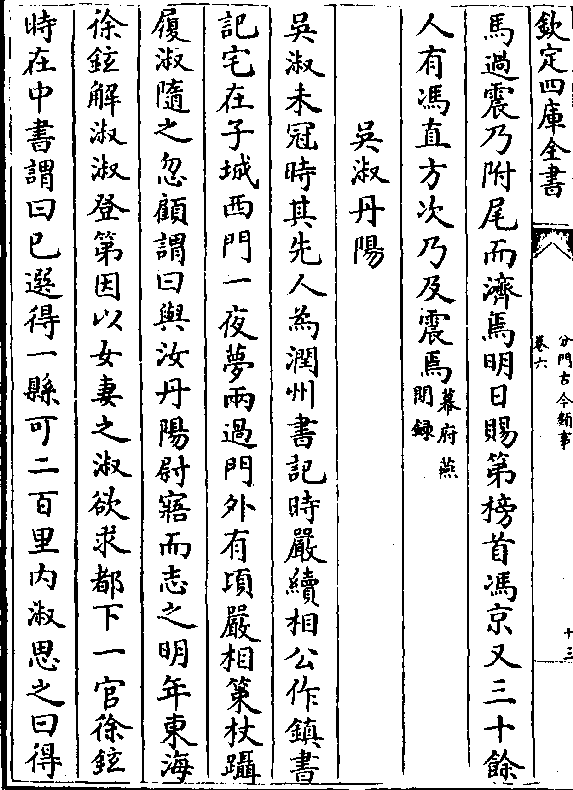 欽定四庫全書
卷六
分門古今類事
十三
馬過震乃附尾而濟焉明日賜第榜首馮京又三十餘
人有馮直方次乃及震焉幕府燕閒錄
吳淑丹陽
吳淑未冠時其先人為潤州書記時嚴續相公作鎮書
記宅在子城西門一夜夢雨過門外有頃嚴相策杖躡
履淑隨之忽顧謂曰與汝丹陽尉寤而志之明年東海
徐鉉解淑淑登第因以女妻之淑欲求都下一官徐鉉
時在中書謂曰已選得一縣可二百里内淑思之曰得